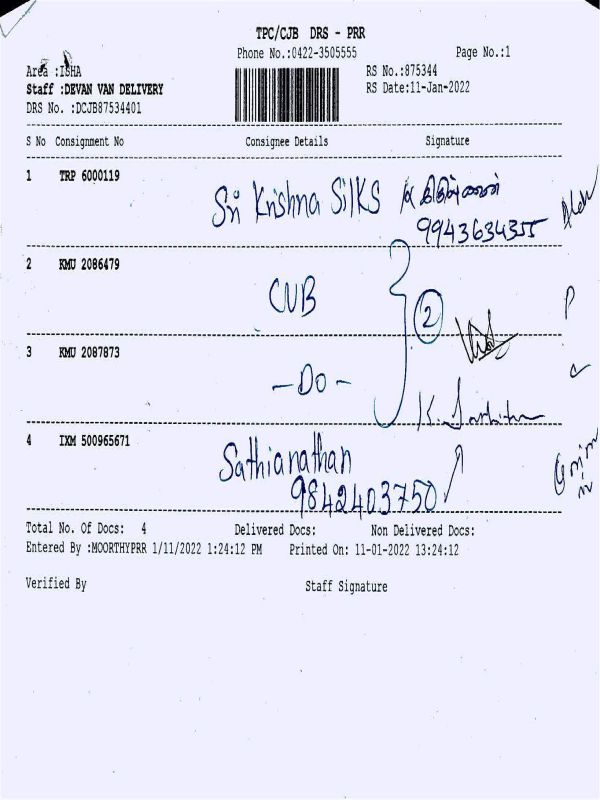 TPC/CJB DRS - PRR
Phone No.:0422-3505555 Page No.:1
Area :ISHA RS No.:875344
Staff :DEVAN VAN DELIVERY RS Date:11-Jan-2022
DRS No. :DCJB87534401
S No Consignment No Consignee Details Signature
1 TRP 6000119
Sri Krishna Silks
9943634355
2 KMU 2086479
CUB
2
3 KMU 2087873
- Do -
K.
4 IXM 500965671
Sathianathan
9842403750
Total No. Of Docs: 4 Delivered Docs: Non Delivered Docs:
Entered By :MOORTHYPRR 1/11/2022 1:24:12 PM Printed On: 11-01-2022 13:24:12
Verified By Staff Signature